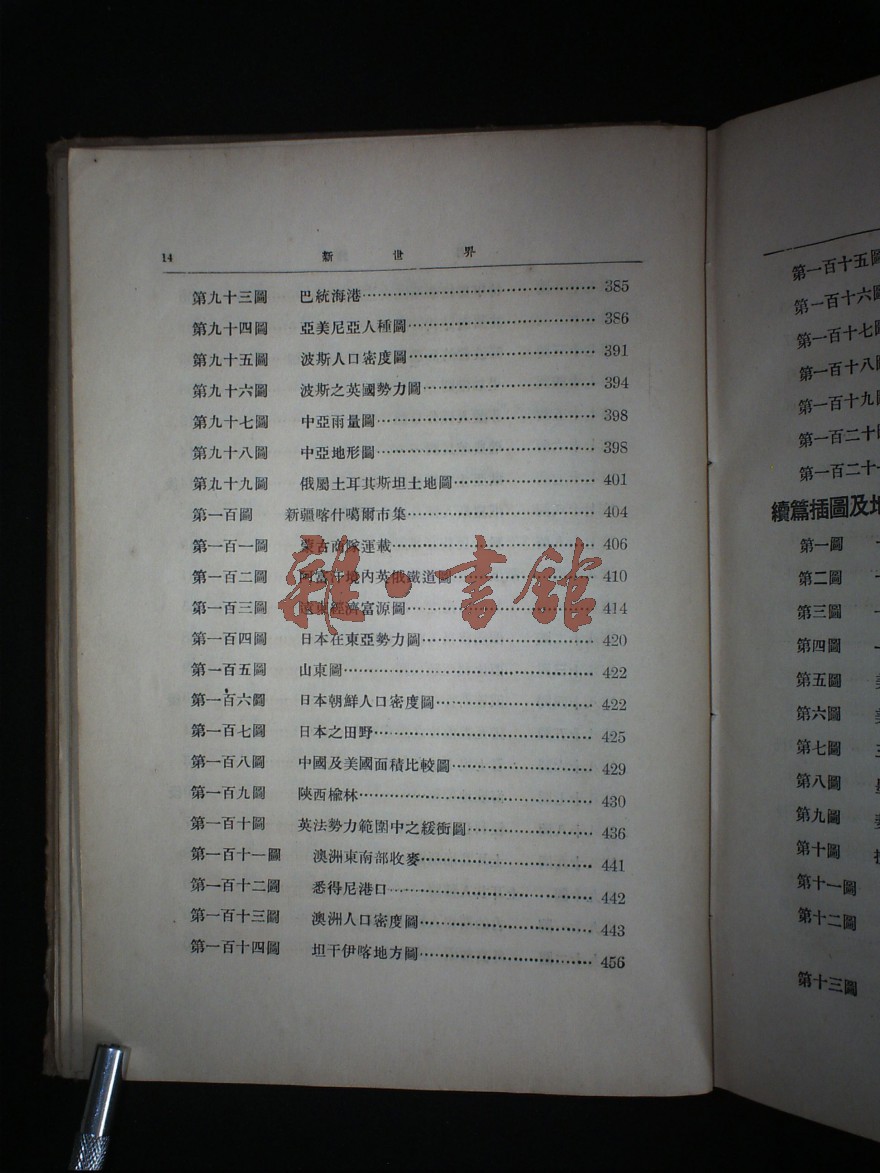 14 新世界
第九十三圖 巴統海港 385
第九十四圖 亞美尼亞人種圖 386
第九十五圖 波斯人口密度圖 391
第九十六圖 波斯之英國勢力圖 394
第九十七圖 中亞雨量圖 398
第九十八圖 中亞地形圖 398
第九十九圖 俄屬土耳其斯坦土地圖 401
第一百圖 新疆喀什噶爾市集 404
第一百一圖 蒙古商隊運載 406
第一百二圖 阿富汗境內英俄鐵道圖 410
第一百三圖 遠東經濟富源圖 414
第一百四圖 日本在東亞勢力圖 420
第一百五圖 山東圖 422
第一百六圖 日本朝鮮人口密度圖 422
第一百七圖 日本之田野 425
第一百八圖 中國及美國面積比較圖 429
第一百九圖 陝西榆林 430
第一百十圖 英法勢力範圍中之緩衝圖 436
第一百十一圖 澳洲東南部收麥 441
第一百十二圖 悉得尼港口 442
第一百十三圖 澳洲人口密度圖 443
第一百十四圖 坦干伊喀地方圖 456
雜·書館
第一百十五圖
第一百十六圖
第一百十七圖
第一百十八圖
第一百十九圖
第一百二十圖
第一百二十一
續篇插圖及地
第一圖
第二圖
第三圖
第四圖
第五圖
第六圖
第七圖
第八圖
第九圖
第十圖
第十一圖
第十二圖
第十三圖